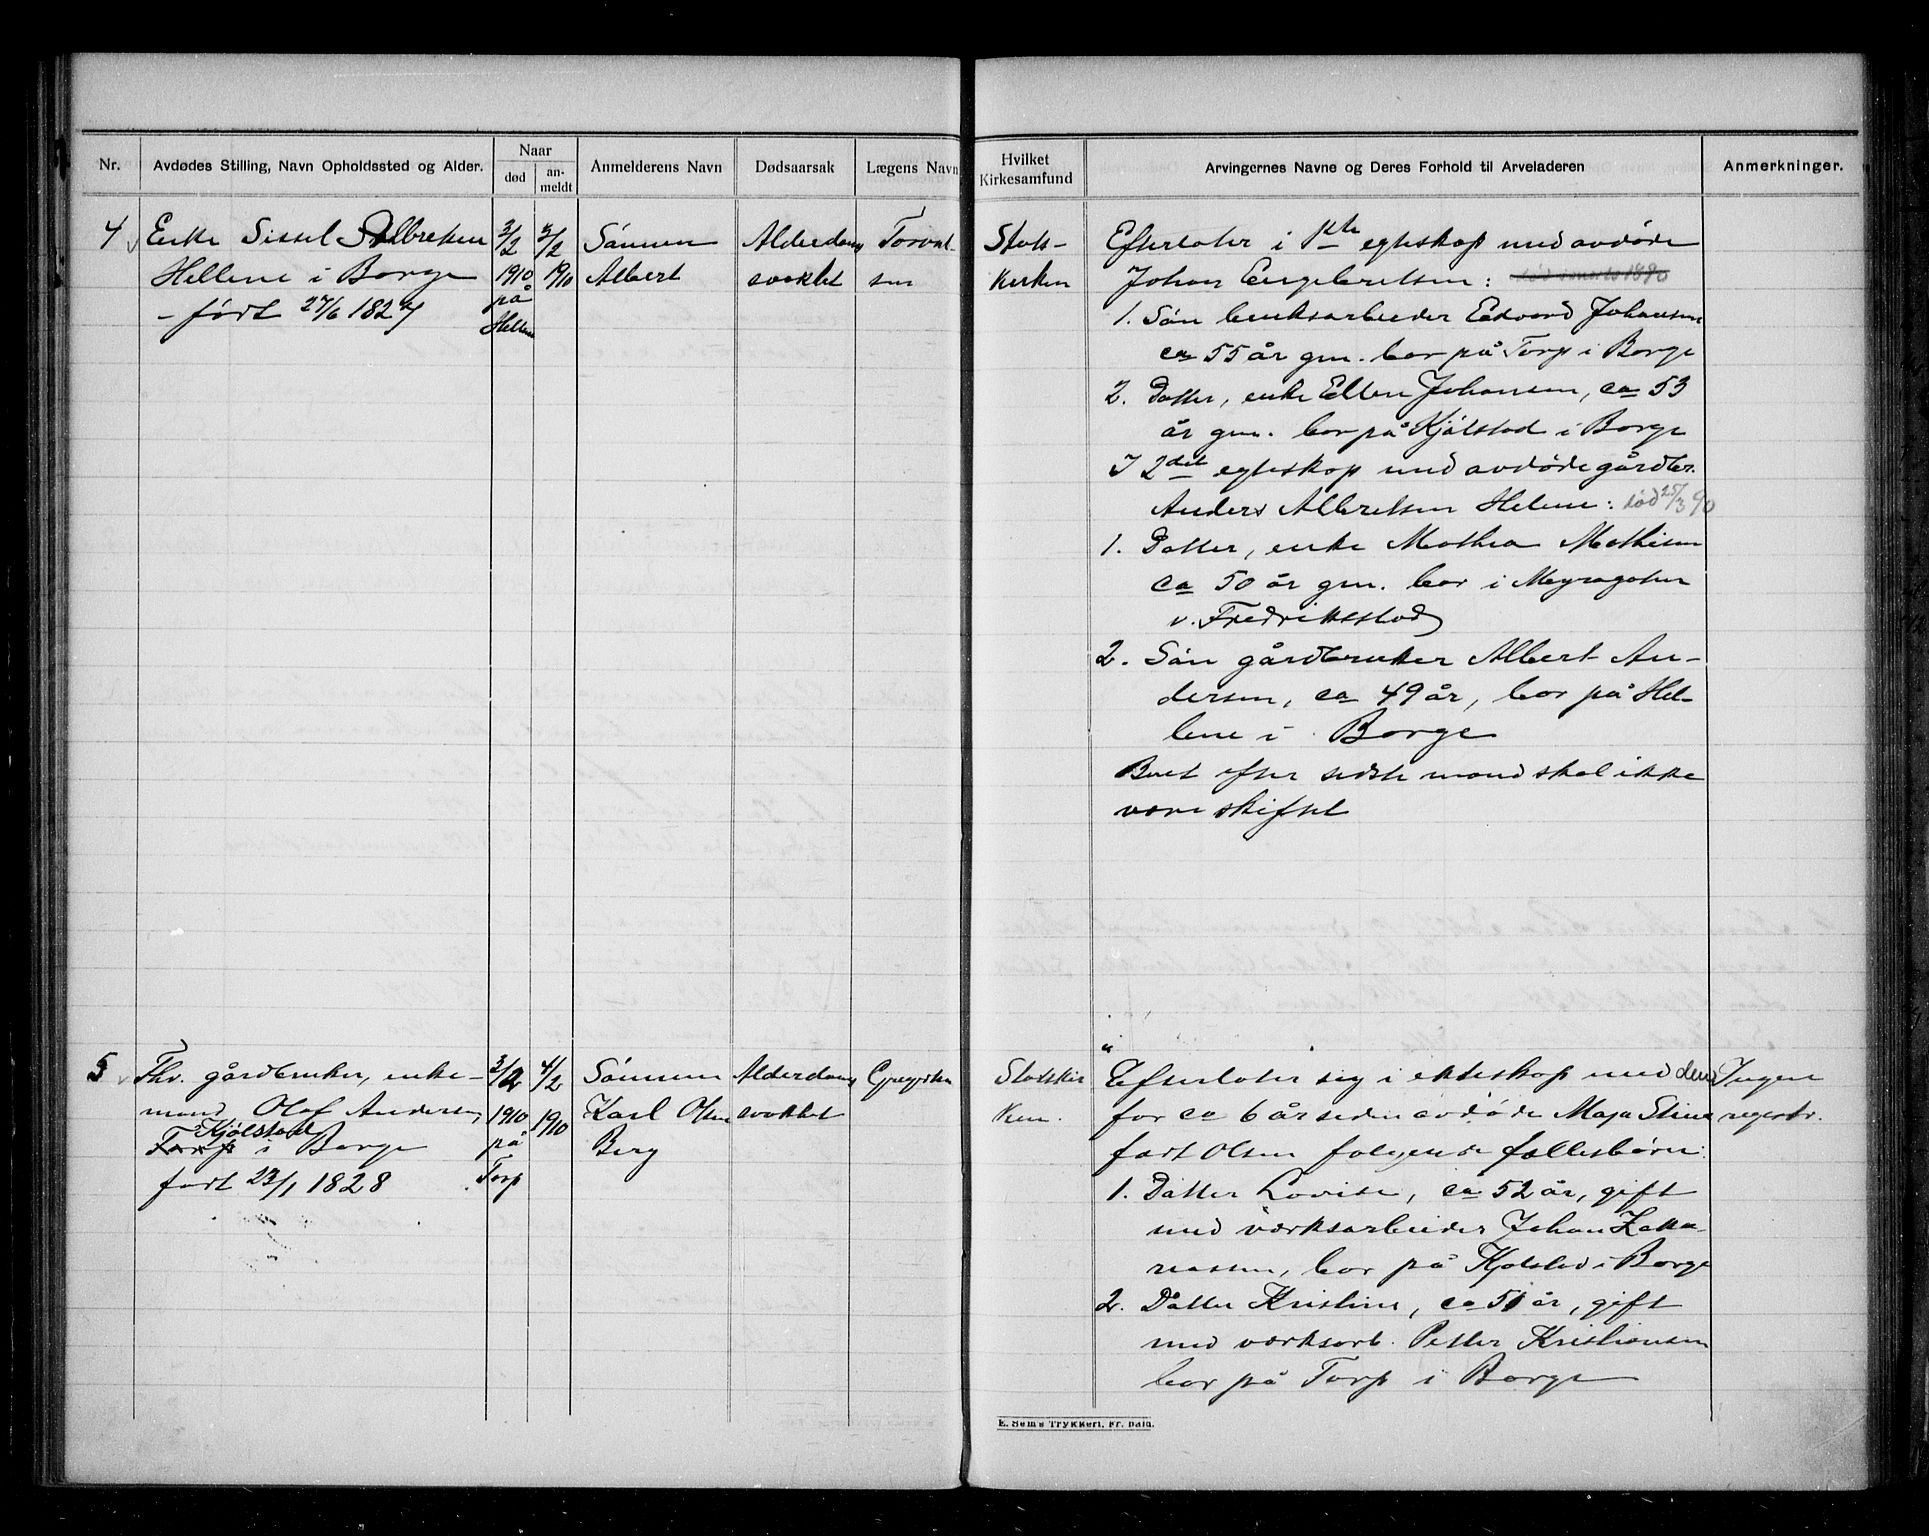 Nr.
Avdødes Stilling, Navn Opholdssted og Alder.
Naar
død
an-
meldt
Anmelderens Navn
Dødsaarsak
Lægens Navn
Hvilket
Kirkesamfund
Arvingernes Navne og Deres Forhold til Arveladeren
Anmerkninger.
4
Enke Sissel Albretsen
Hellene i Borge
- født 27/6 1827
3/2
1910
på
Hellene
3/2
1910
Sønnen
Albert
Alderdoms
svakhet
Torval-
sen
Stats-
kirken
Efterlater i 1ste egteskap med avdøde
Johan Engebretsen: død i marts 1890
1. Søn bruksarbeider Edvard Johansen
ca 55 år gm. bor på Torp i Borge
2. Datter, enke Ellen Johansen, ca 53
år gm. bor på Kjølstad i Borge
I 2det egteskap med avdøde gårdbr.
Anders Albretsen Helene: død 25/3 90
1. Datter, enke Mathea Mathisen
ca 50 år gm. bor i Myragaten
v. Fredriksstad
2. Søn gårdbruker Albert An-
dersen, ca 49 år, bor på Hel-
lene i Borge
Boet efter sidste mand skal ikke
være skiftet
5
Fhv. gårdbruker, enke-
mand Olaf Andersen,
Kjølstad
Torp i Borge
født 22/1 1828
3/2
1910
på
Torp
4/2
1910
Sønnen
Karl Olsen
Berg
Alderdoms
svakhet
Gregersen
Statskir
ken.
Efterlater sig i ekteskap med den
for ca 6 år siden avdøde Maja Stine
født Olsen følgende fællesbørn:
1. Datter Lovise, ca 52 år, gift
med værksarbeider Johan Zaka-
riassen, bor på Kjølstad i Borge
2. Datter Kristine, ca 51 år, gift
med værksarb. Petter Kristiansen
bor på Torp i Borge
Ingen
registr.
E. Sems Trykkeri, Fr.hald.